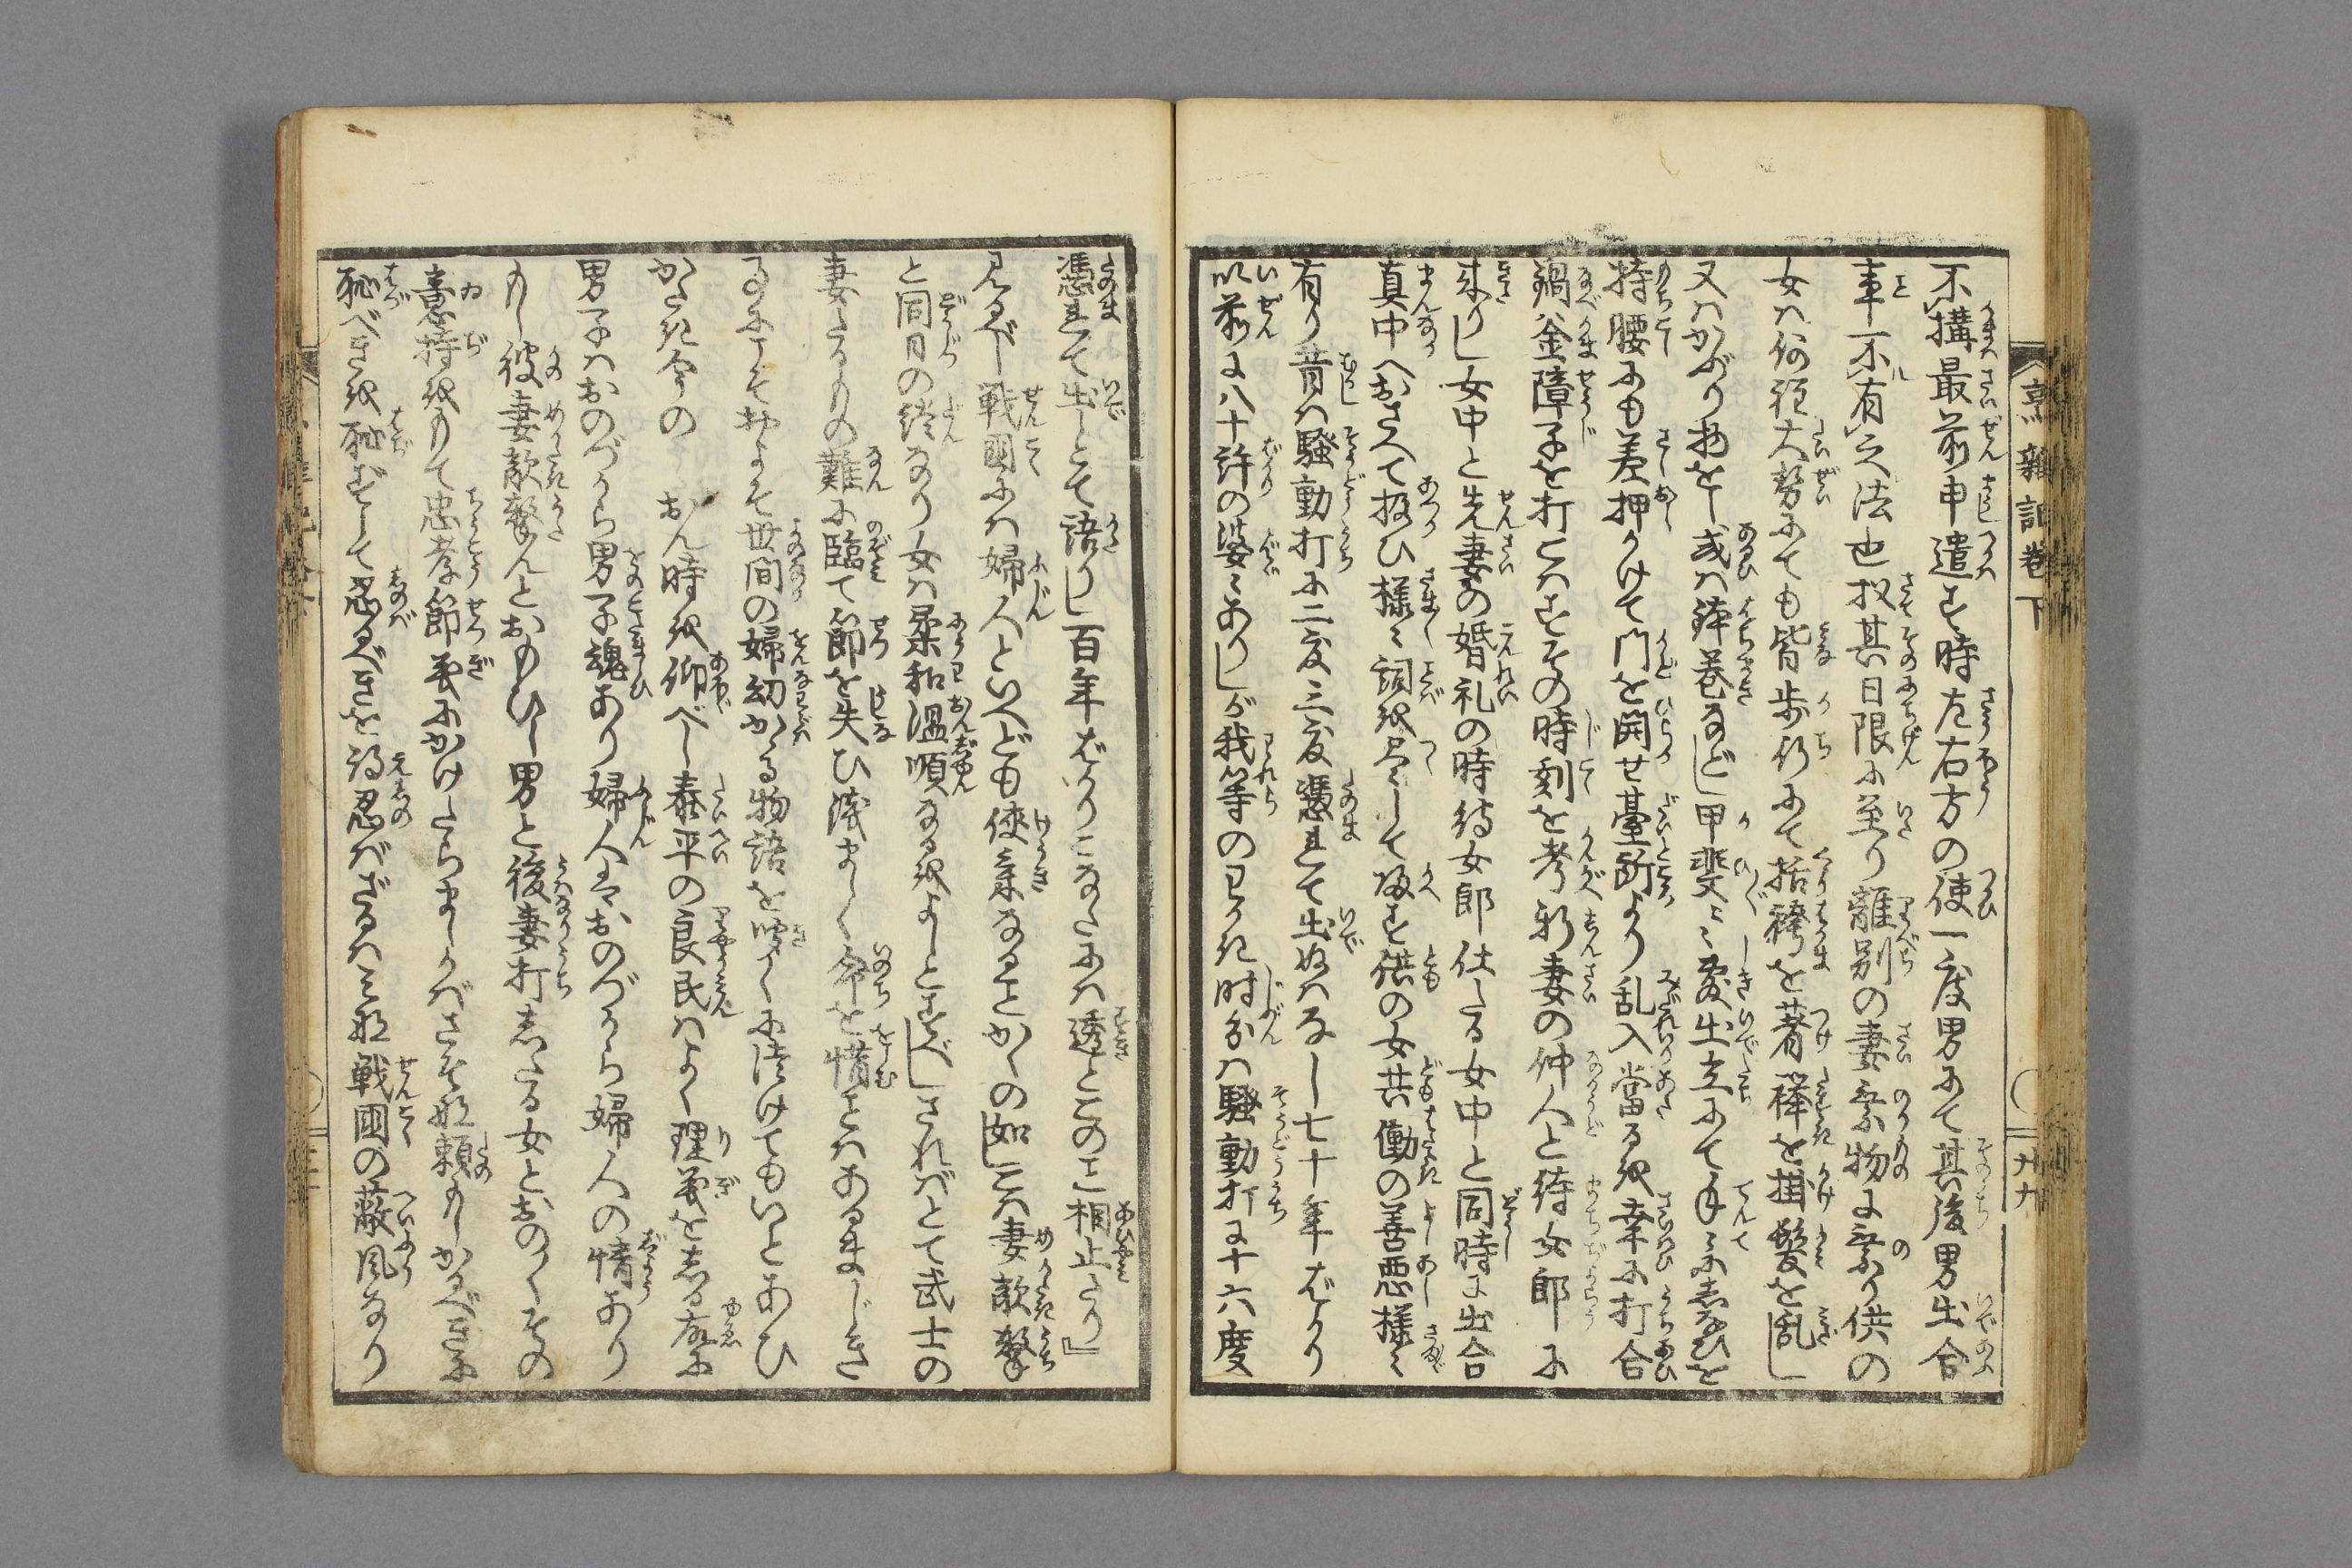 烹雜記巻下 〇 廿九
不構最前申遣す時左右方の使一度男にて其後男出合
事不有之法也扨其日限に至り離別の妻乗物に乗り供の
女は何程大勢にても皆歩行にて括袴を著襷を掛髪を乱し
又はかぶり物をし或は鉢巻など甲斐々敷出立にて手々にしなひを
持腰にも差押かけて門を開せ臺所より乱入當るを幸に打合
鍋釜障子を打こはすその時刻を考新妻の仲人と待女郎に
来りし女中と先妻の婚礼の時待女郎仕たる女中と同時に出合
真中へおさへて扱ひ様々詞を尽して帰す供の女共働の善悪様々
有り昔は騒動打に二度三度憑れて出ぬはなし七十年ばかり
以前に八十許の婆々ありしが我等のわかき時分は騒動打に十六度
憑れて出しとて語りし百年ばかりこなたには透とこの事相止たり』
見るべし戦國には婦人といへども侠氣なることかくの如しこは妻敵撃
と同日の談なり女は柔和温順なるをよしとすべしさればとて武士の
妻たるもの難に臨て節を失ひ浅ましく命を惜ことはあるまじき
事にこそおよそ世間の婦幼かゝる物語を聞くに付けてもいとあひ
がたき今の おん時を仰べし泰平の良民はよく理義をしる故に
男子はおのづから男子魂あり婦人はおのづから婦人の情あり
もし彼妻敵撃んとおもひし男と後妻打したる女とおの〳〵その
意持をもて忠孝節義にかけたらましかばさぞな頼もしかるべきに
恥べきを恥ずして忍るべきを得忍ばざるはみな戦國の蔽風なり